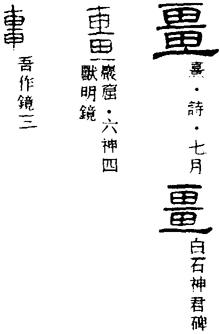 畺
熹・詩・七月
畺
白石神君碑
巖窟・六神四
獸明鏡
吾作鏡三